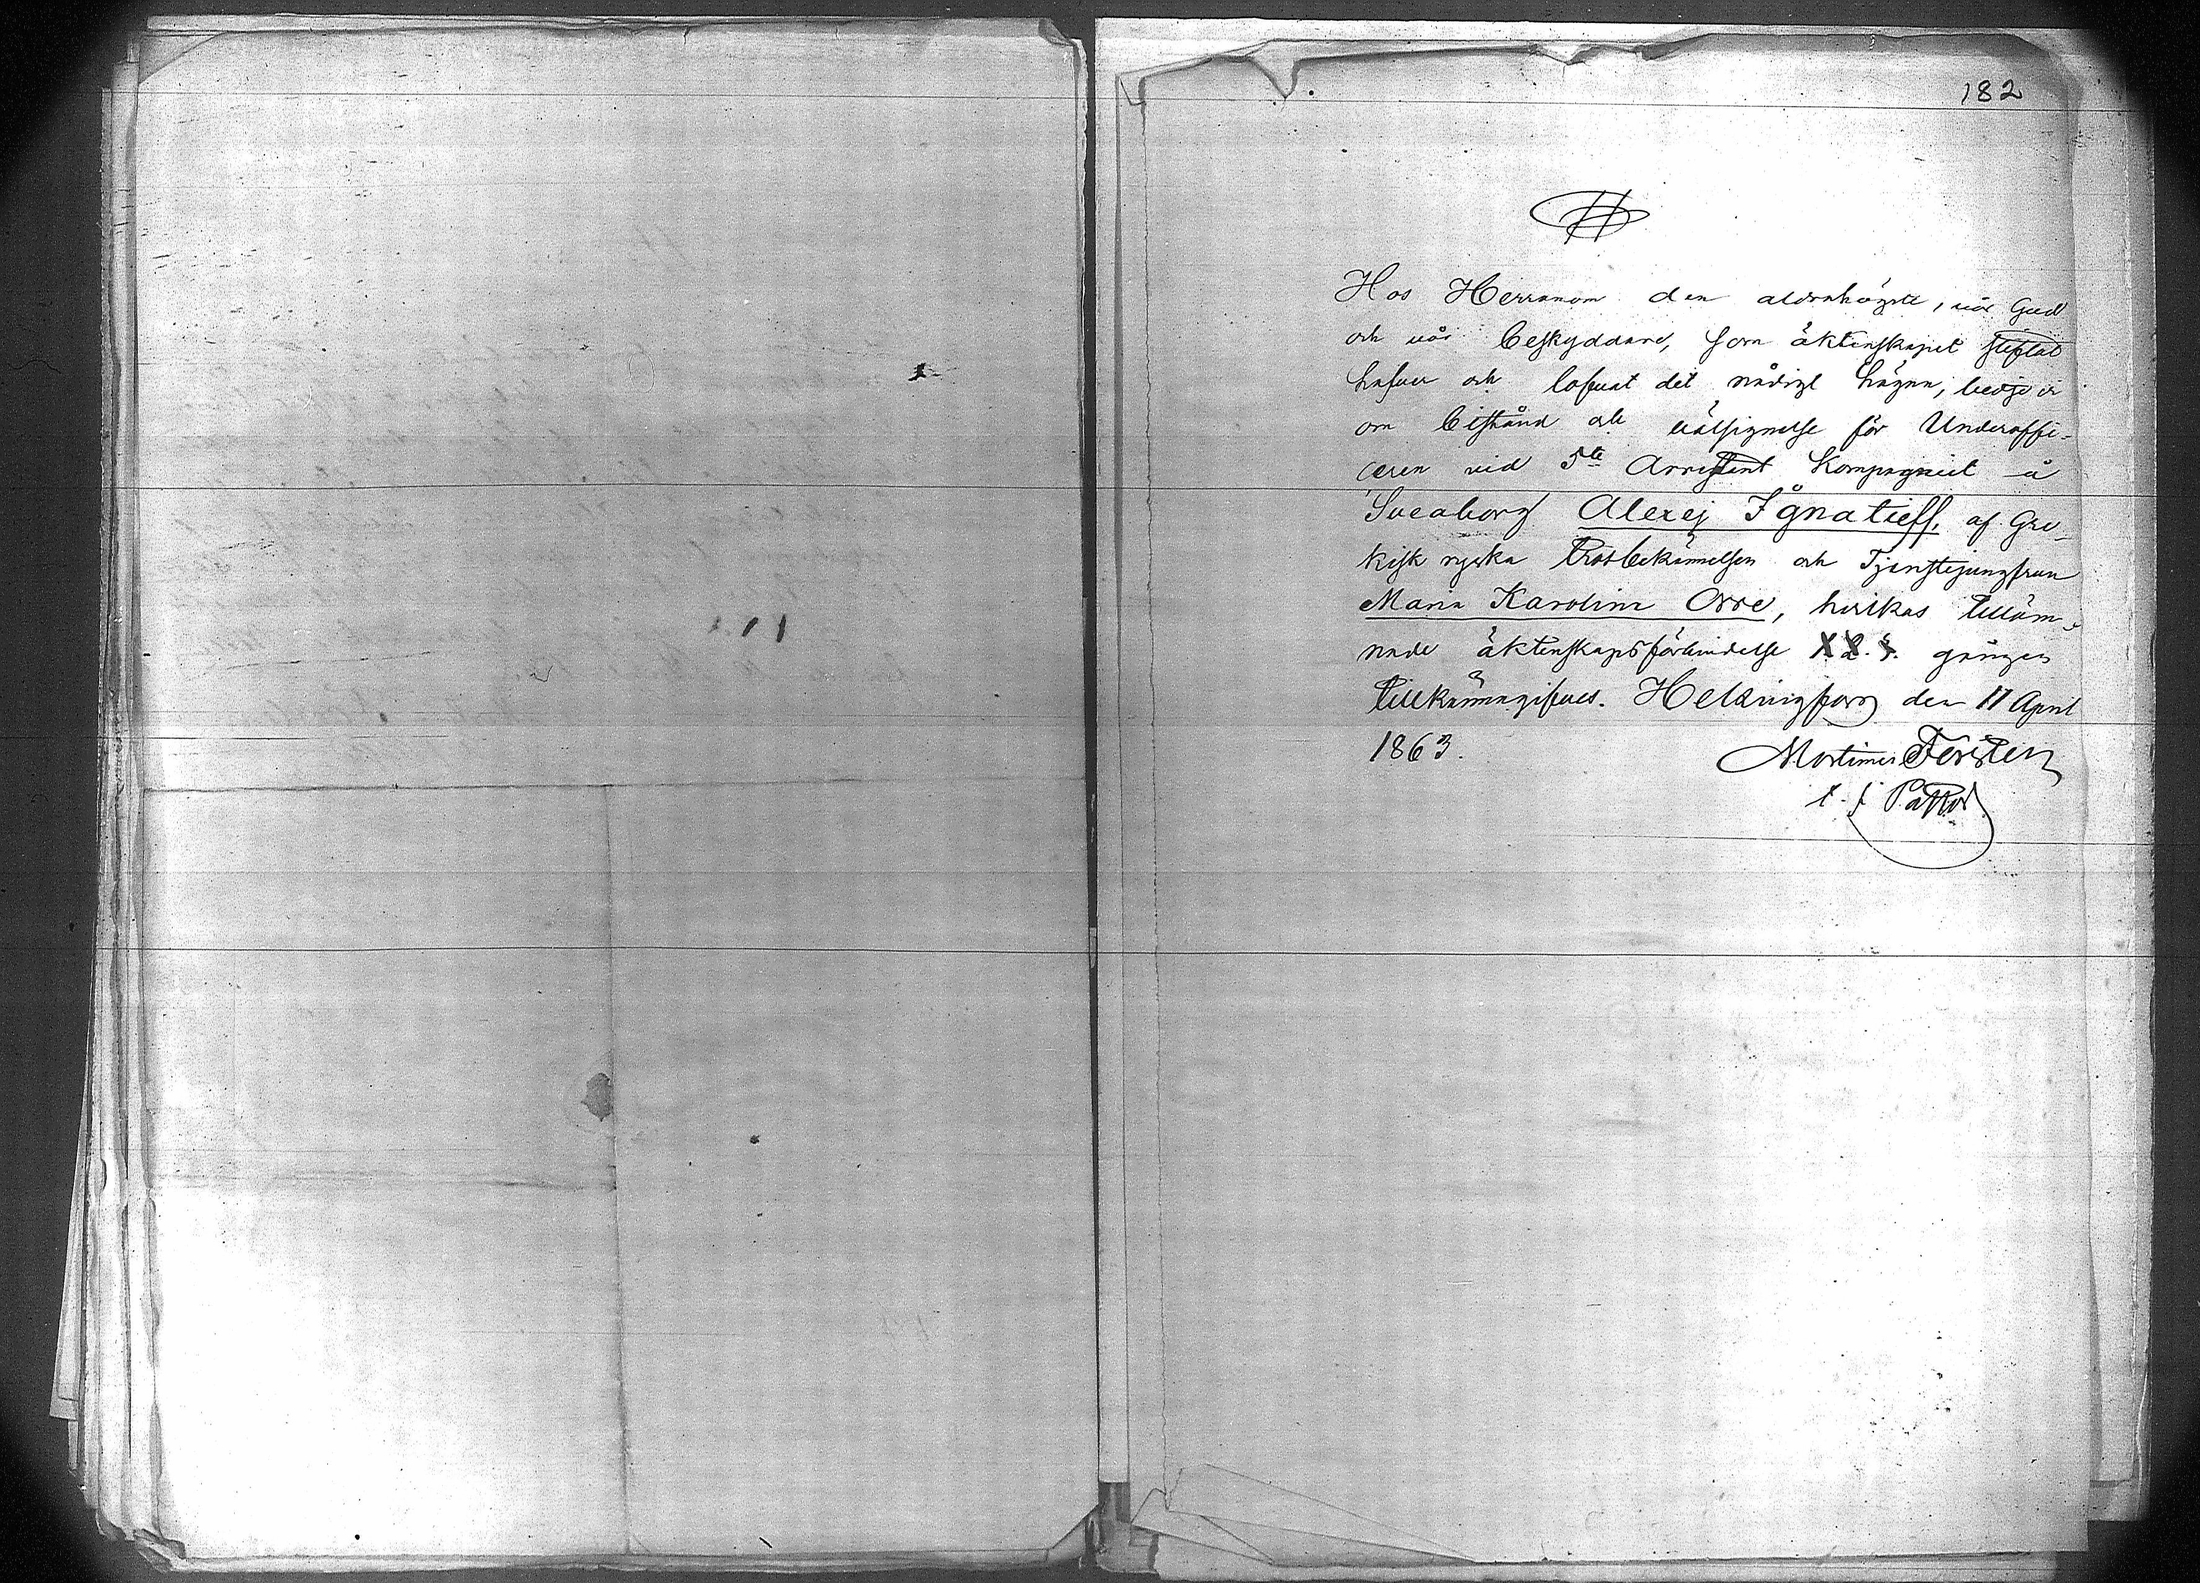 182
Hos Herranom den aldrahögste, vår Gud
och vår beskyddare, som äktenskapet stiftat
hafver och lofvat det nådigt hägna, bedje vi
om bistånd och välsignelse för Underoffi-
ceren vid 5te Arrestent Kompagniet å
Sveaborg Alexej Ignatieff, af Gre-
kisk ryska trosbekännelsen och Tjenstejungfrun
Maria Karolina Orre, hvilkas tilläm-
nade äktenskapsförbindelse gången
tillkännagifves. Helsingfors den 11 April
1863.
Mortimer Forstén
Pastor